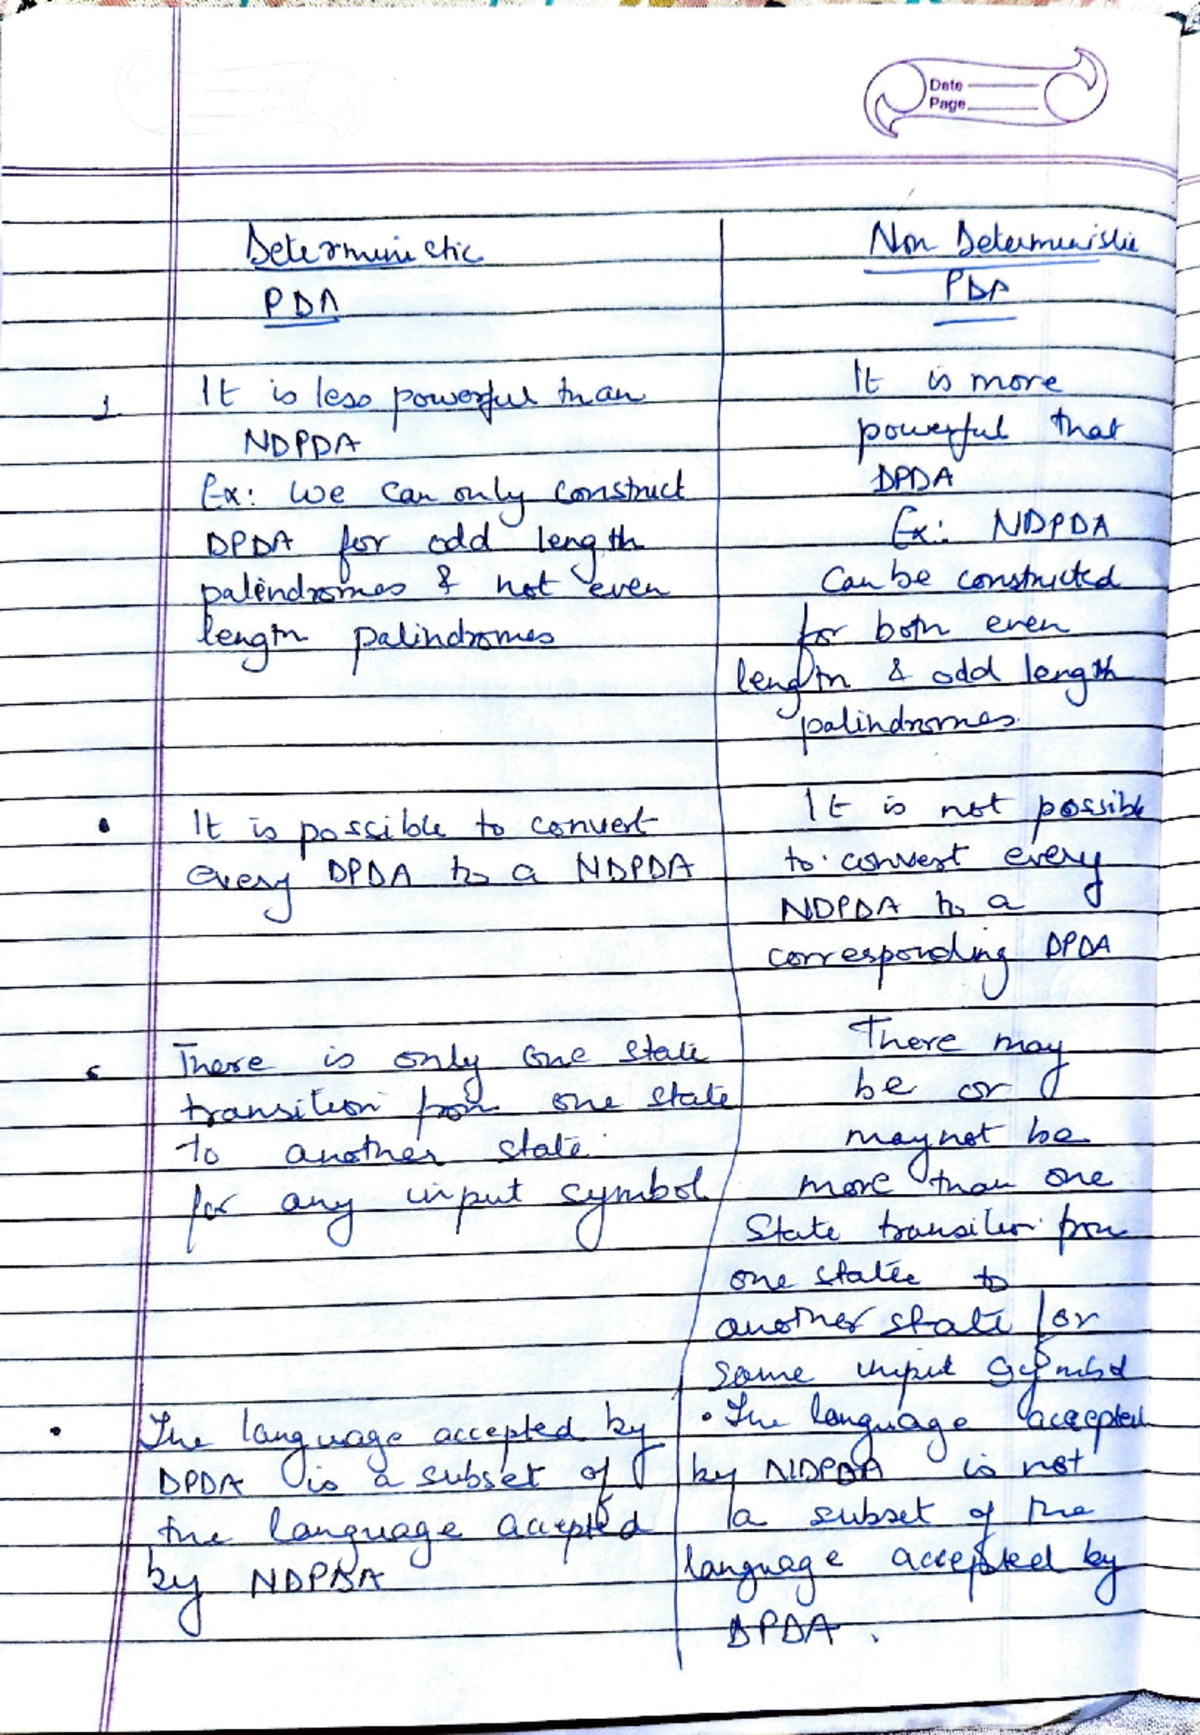 Date
Page
Deterministic
PDA
1 It is less powerful than
NDPDA
Ex: We can only construct
DPDA for odd length
palindromes & not even
length palindromes
• It is possible to convert
every DPDA to a NDPDA
• There is only one state
transition from one state
to another state
for any input symbol
• The language accepted by
DPDA is a subset of
the language accepted
by NDPDA
Non Deterministic
PDA
It is more
powerful that
DPDA
Ex: NDPDA
can be constructed
for both even
length & odd length
palindromes.
It is not possible
to convert every
NDPDA to a
corresponding DPDA
There may
be or
may not be
more than one
State transition from
one state to
another state for
some input symbol
• The language accepted
by NDPDA is not
a subset of the
language accepted by
DPDA.